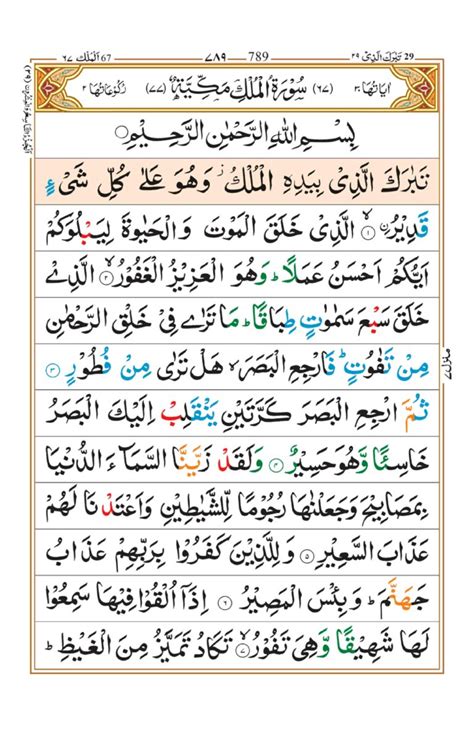 29 تَبٰرَكَ الَّذِىْ ٢٩ 789 ٧٨٩ 67 اَلْمُلْك ٦٧
اٰيَاتُهَا ٣٠ (٦٧) سُوْرَةُ الْمُلْكِ مَكِّيَّةٌ (٧٧) رُكُوْعَاتُهَا ٢
بِسْمِ اللّٰهِ الرَّحْمٰنِ الرَّحِيْمِ
تَبٰرَكَ الَّذِىْ بِيَدِهِ الْمُلْكُ ز وَهُوَ عَلٰى كُلِّ شَىْءٍ
قَدِيْرُ ۙ ۨ ١ الَّذِىْ خَلَقَ الْمَوْتَ وَالْحَيٰوةَ لِيَبْلُوَكُمْ
اَيُّكُمْ اَحْسَنُ عَمَلًا ؕ وَهُوَ الْعَزِيْزُ الْغَفُوْرُ ۙ ٢ الَّذِىْ
خَلَقَ سَبْعَ سَمٰوٰتٍ طِبَاقًا ؕ مَا تَرٰى فِىْ خَلْقِ الرَّحْمٰنِ
مِنْ تَفٰوُتٍ ؕ فَارْجِعِ الْبَصَرَ ۙ هَلْ تَرٰى مِنْ فُطُوْرٍ ٣
ثُمَّ ارْجِعِ الْبَصَرَ كَرَّتَيْنِ يَنْقَلِبْ اِلَيْكَ الْبَصَرُ
خَاسِئًا وَّهُوَ حَسِيْرٌ ٤ وَلَقَدْ زَيَّنَّا السَّمَآءَ الدُّنْيَا
بِمَصَابِيْحَ وَجَعَلْنٰهَا رُجُوْمًا لِّلشَّيٰطِيْنِ وَاَعْتَدْنَا لَهُمْ
عَذَابَ السَّعِيْرِ ٥ وَلِلَّذِيْنَ كَفَرُوْا بِرَبِّهِمْ عَذَابُ
جَهَنَّمَ ؕ وَبِئْسَ الْمَصِيْرُ ٦ اِذَاۤ اُلْقُوْا فِيْهَا سَمِعُوْا
لَهَا شَهِيْقًا وَّهِىَ تَفُوْرُ ۙ ٧ تَكَادُ تَمَيَّزُ مِنَ الْغَيْظِ ؕ
منزل ٧